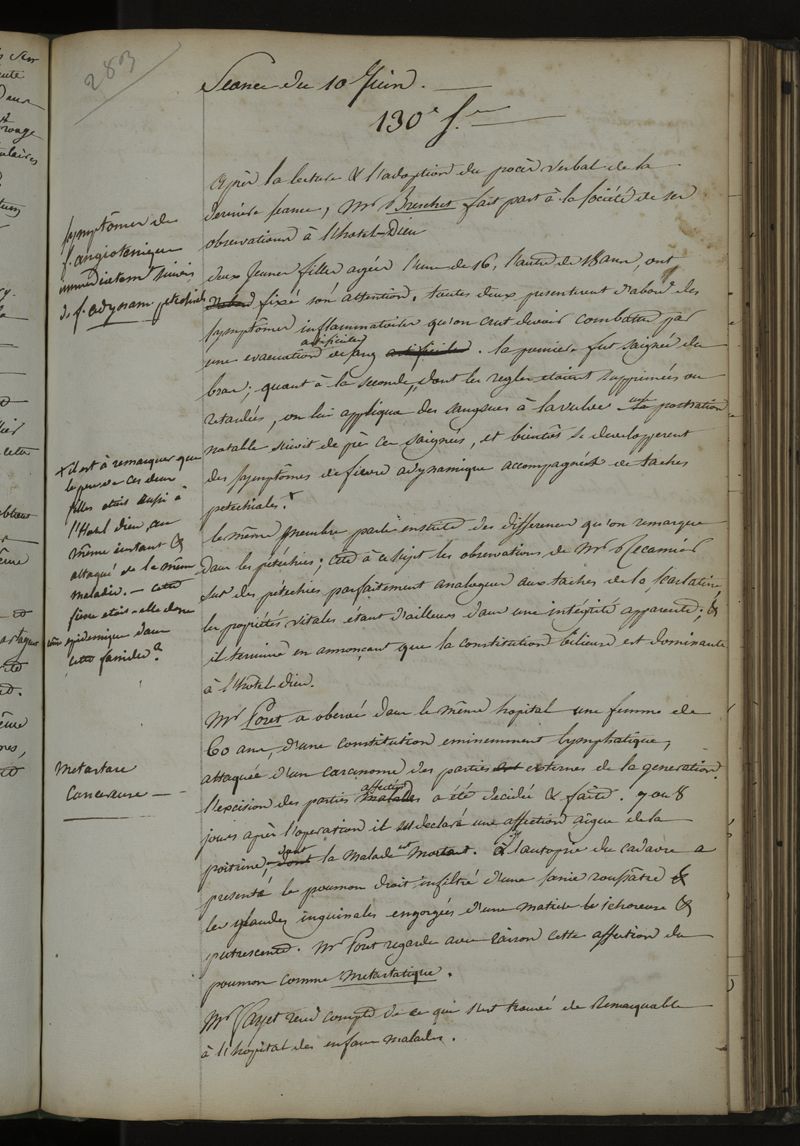 283
Séance du 10 Juin.
130e S.ce
Après la lecture & l'adoption du procès verbal de la
dernière séance, Mr Breschet fait part à la société de ses
observations à l'hotel-Dieu
deux jeunes filles agées l'une de 16, l'autre de 18 ans, ont
fixé son attention. toutes deux presenterent d'abord des
symptômes inflammatoires qu'on crut devoir combattre par
une evacuation artificielle de sang artificielle. la première fut saignée du
bras; quant à la seconde, dont les regles etaient supprimées ou
retardées, on lui appliqua des sangsues à la vulve une prostration
notable suivit de près ces saignées, et bientôt se developperent
des symptômes de fièvre adynamique accompagnés de taches
petechiales. x
le même membre parle ensuite des differences qu'on remarque
dans les pétéchies; cite à ce sujet les observations de Mr Recamier
sur des pétéchies parfaitement analogues aux taches de la scarlatine
les propriétés vitales étant d'ailleurs dans une intégrité apparente; &
il termine en annonçant que la constitution bilieuse est dominante
à l'hotel-dieu.
Mr Poret a observé dans le même hopital une femme de
60 ans, d'une constitution eminemment lymphatique,
attaquée d'un carcinome des parties externes de la generation
l'excision des parties affectées malades a été decidée & faite. 7 ou 8
jours après l'operation il s'est declaré une affection aigue de la
poitrine, dont dont la malade est morte. L'autopsie du cadavre a
presenté le poumon droit infiltré d'une sanie roussâtre &
les glandes inguinales engorgées d'une matière ichoreuse &
putrescente. Mr Poret regarde avec raison cette affection du
poumon comme metastatique.
Mr Payet rend compte de ce qui s'est trouvé de remarquable
à l'hopital des enfans malades.
symptômes de
f. angioténique
immédiatem.t suivis
de f. adynam. petechiale
x il est à remarquer que
le pere de ces deux
filles etait aussi à
l'Hotel dieu au
même instant &
attaqué de la même
maladie. — cette
fièvre etait-elle donc
epidemique dans
cette famille?
Metastase
Cancereuse —